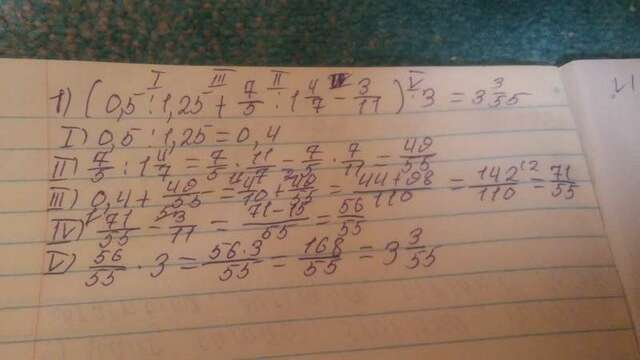 I III II IV V
1) (0,5 : 1,25 + 7/5 : 1 4/7 - 3/11) · 3 = 3 3/55
I) 0,5 : 1,25 = 0,4
II) 7/5 : 1 4/7 = 7/5 : 11/7 = 7/5 · 7/11 = 49/55
III) 0,4 + 49/55 = 4/10 + 49/55 = 44+98/110 = 142/110 = 71/55
IV) 71/55 - 3/11 = 71-15/55 = 56/55
V) 56/55 · 3 = 56·3/55 = 168/55 = 3 3/55